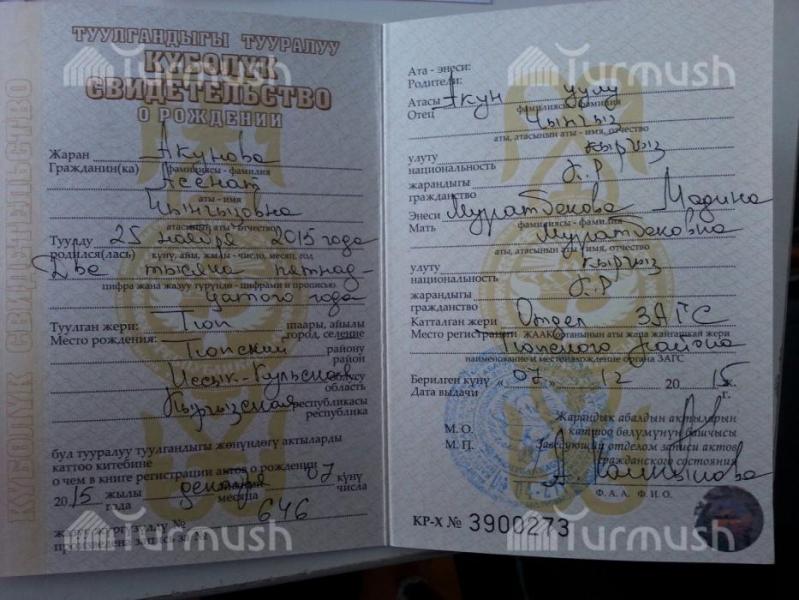 ТУУЛГАНДЫГЫ ТУУРАЛУУ
КҮБӨЛҮК
СВИДЕТЕЛЬСТВО
О РОЖДЕНИИ
Жаран Акунова
Гражданин(ка) фамилиясы - фамилия
Асенат
аты - имя
Чынгызовна
атасынын аты - отчество
Туулду 25 ноября 2015 года
родился(лась) күнү, айы, жылы - число, месяц, год
Две тысяча пятнад-
цифра жана жазуу түрүндө - цифрами и прописью
цатого года
Туулган жери: Тюп шаары, айылы
Место рождения: город, селение
Тюпский району
район
Иссык-Кульская облусу
область
Кыргызская республикасы
республика
бул тууралуу туулгандыгы жөнүндөгү актыларды
каттоо китебине
о чем в книге регистрации актов о рождении
2015 жылы декабря 07 күнү
года месяца числа
646
КУБӨЛҮК СВИДЕТЕЛЬСТВО
Ата - энеси:
Родители:
Атасы Акун уулу
Отец фамилиясы - фамилия
Чынгыз
аты, атасынын аты - имя, отчество
улуту кыргыз
национальность
жарандыгы К.Р
гражданство
Энеси Муратбекова Мадина
Мать фамилиясы - фамилия
Муратбековна
аты, атасынын аты - имя, отчество
улуту кыргыз
национальность
жарандыгы К.Р
гражданство
Катталган жери Отдел ЗАГС
Место регистрации ЖААК органынын аты жана жайгашкан жери
Тюпского района
наименование и местонахождение органа ЗАГС
Берилген күнү «07» 12 2015ж.
Дата выдачи г.
Жарандык абалдын актыларын
М. О. каттоо бөлүмүнүн башчысы
М. П. Заведующий отделом записи актов
гражданского состояния
Ф.А.А. Ф.И.О.
КР-Х № 3900273
Turmush
Turmush
Turmush
Turmush
Turmush
Turmush